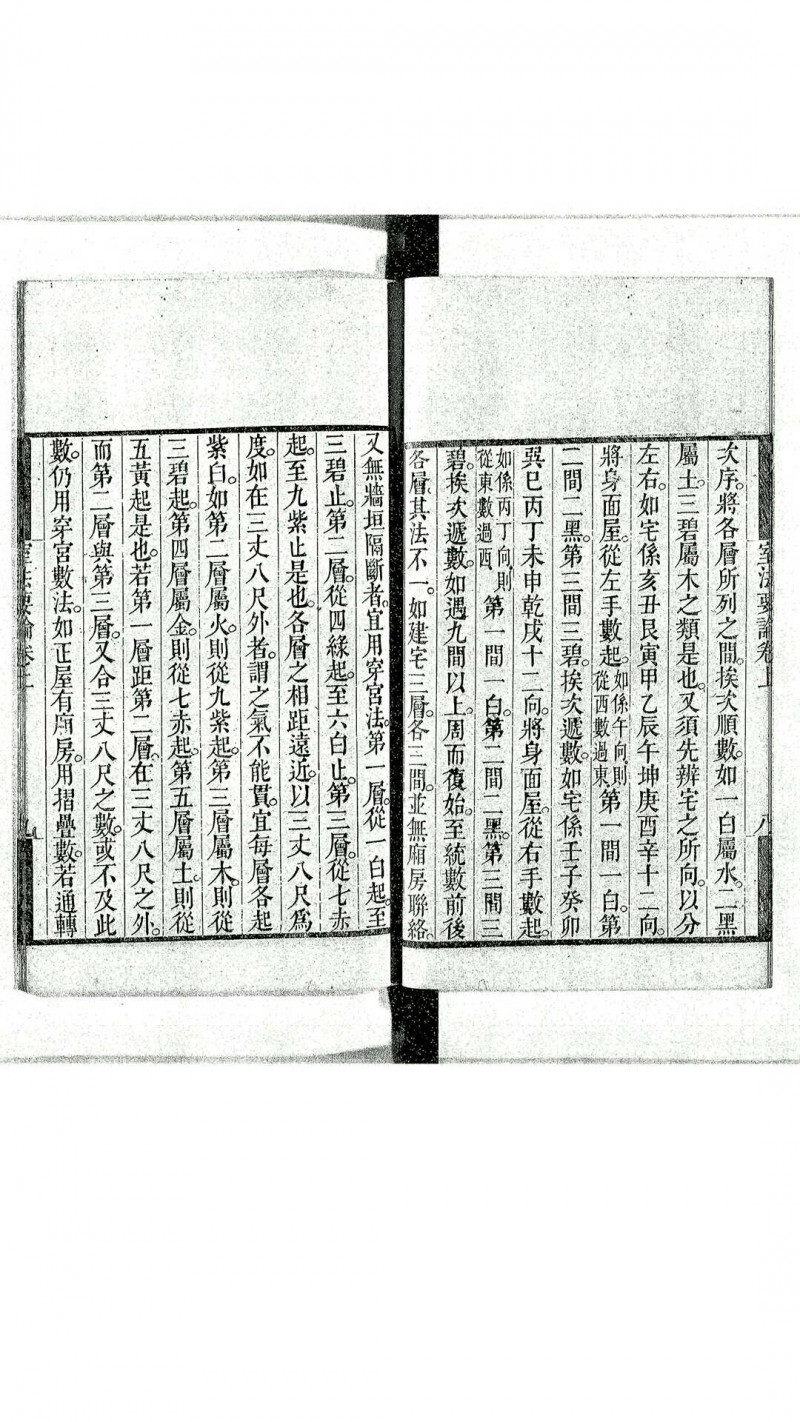 次序。將各層所列之間。挨次順數。如一白屬水。二黑
屬土。三碧屬木之類是也。又須先辨宅之所向。以分
左右。如宅係亥丑艮寅甲乙辰午坤庚酉辛十二向。
將身面屋。從左手數起。如係午向。則從西數過東。第一間一白。第
二間二黑。第三間三碧。挨次遞數。如宅係壬子癸卯
巽巳丙丁未申乾戌十二向。將身面屋。從右手數起。
如係丙丁向。則從東數過西。第一間一白。第二間二黑。第三間三
碧。挨次遞數。如遇九間以上。周而復始。至統數前後
各層。其法不一。如建宅三層。各三間。並無廂房聯絡。
又無牆垣隔斷者。宜用穿宮法。第一層。從一白起。至
三碧止。第二層。從四綠起。至六白止。第三層。從七赤
起。至九紫止是也。各層之相距遠近。以三丈八尺為
度。如在三丈八尺外者。謂之氣不能貫。宜每層各起
紫白。如第二層屬火。則從九紫起。第三層屬木。則從
三碧起。第四層屬金。則從七赤起。第五層屬土。則從
五黃起是也。若第一層距第二層。在三丈八尺之外。
而第二層與第三層。又合三丈八尺之數。或不及此
數。仍用穿宮數法。如正屋有廂房。用摺疊數。若通轉